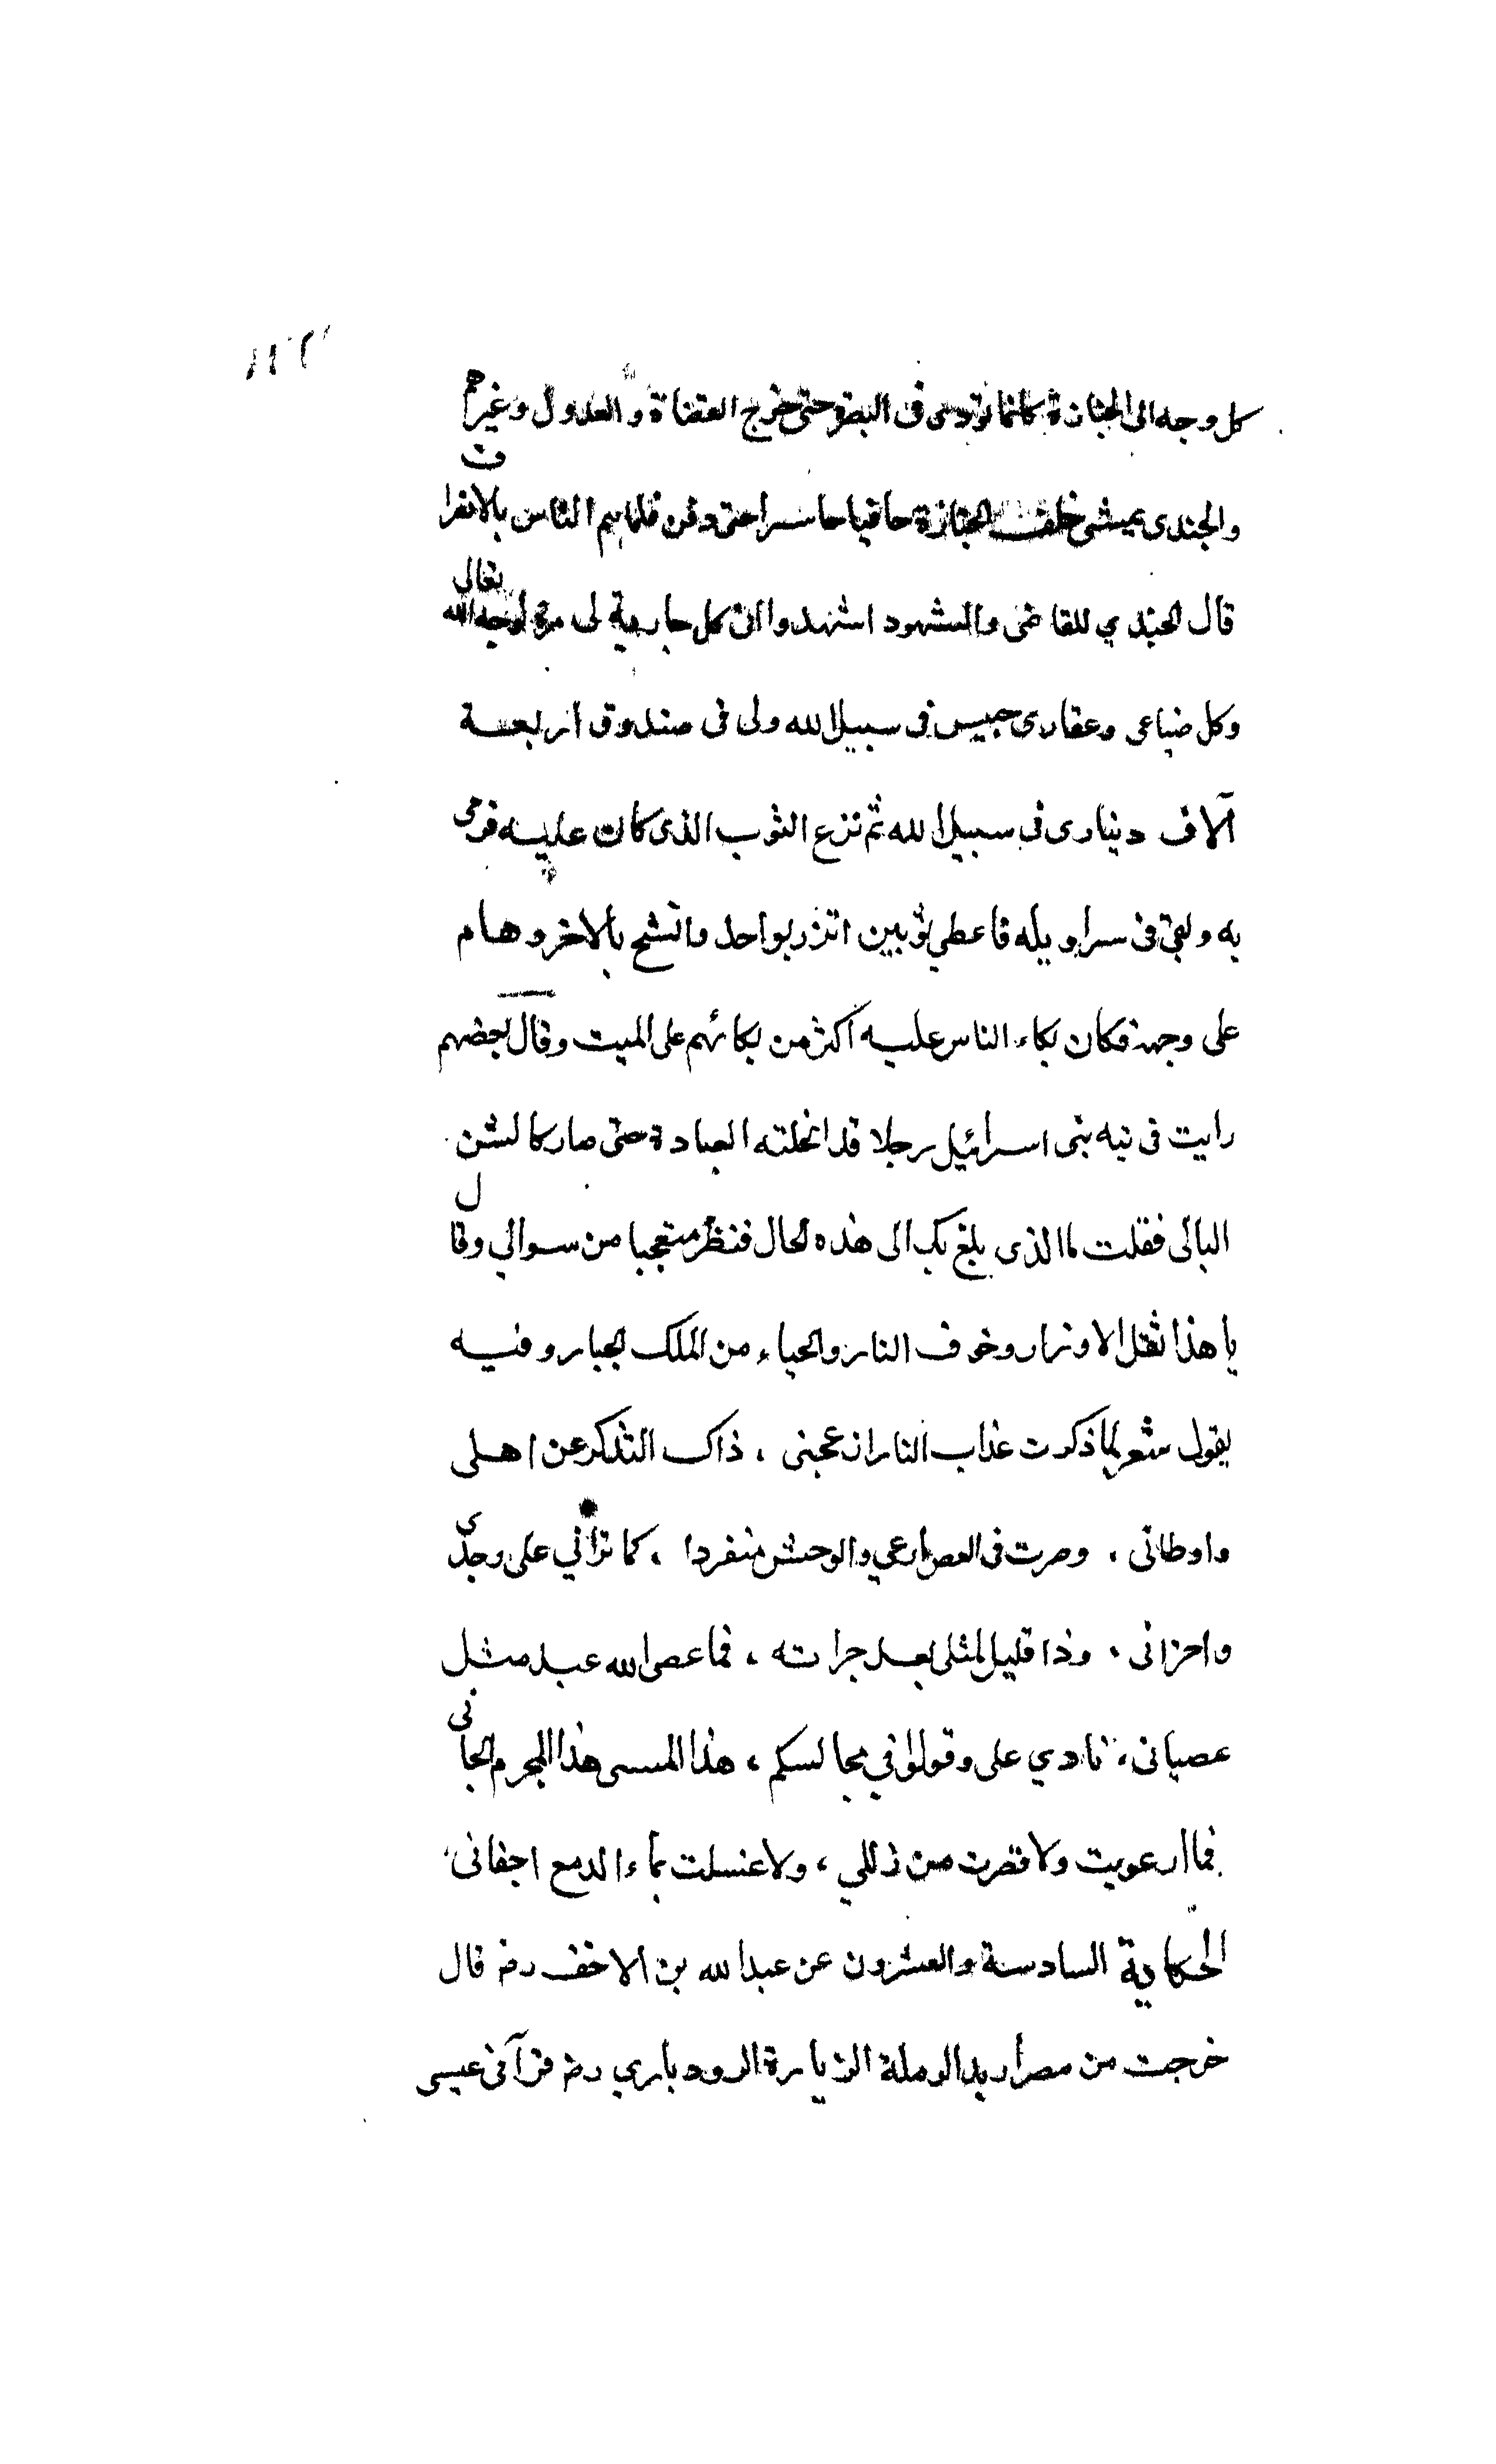 كل وجه الى الجنازة كانما نودى فى البصرة حتى خرج القضاة والعدول وغيرهم
والجندى يمشى خلف الجنازة حافيا حاسرا حتى دفن فلما هم الناس بالانصراف
قال الجندي للقاضى والشهود اشهدوا ان كل جارية لى حرة لوجه الله تعالى
وكل ضياعى وعقارى حبيس فى سبيل الله ولى فى صندوق اربعة
آلاف دينارى فى سبيل الله ثم نزع الثوب الذى كان عليه فرمى
به وبقى فى سراويله فاعطي ثوبين اتزر بواحد واتشح بالاخر وهام
على وجهه فكان بكاء الناس عليه أكثر من بكائهم على الميت وقال بعضهم
رايت فى تيه بنى اسرائيل رجلا قد انحلته العبادة حتى صار كالشن
البالى فقلت ما الذى بلغ بك الى هذه الحال فنظر متعجبا من سوالي وقال
يا هذا ثقل الاوزار وخوف النار والحياء من الملك الجبار وفيه
يقول شعر لما ذكرت عذاب النار ازعجنى ، ذاك التذكر عن اهلى
واوطانى ، وصرت فى القصر ارعي والوحش منفردا ، كما تراني على وجدى
واحزانى ، وذا قليل لمثلى بعد جراته ، فما عصى الله عبد مثل
عصيانى ، نادي على وقولوا في مجالسكم ، هذا المسى هذا المجرم الجانى
فما ارعويت ولا قصرت من زللي ، ولا غسلت بماء الدمع اجفانى
الحكاية السادسة والعشرون عن عبد الله بن الاخف رض قال
خرجت من مصر أريد الرملة الزيارة الرودباري رض فرآنى عيسى